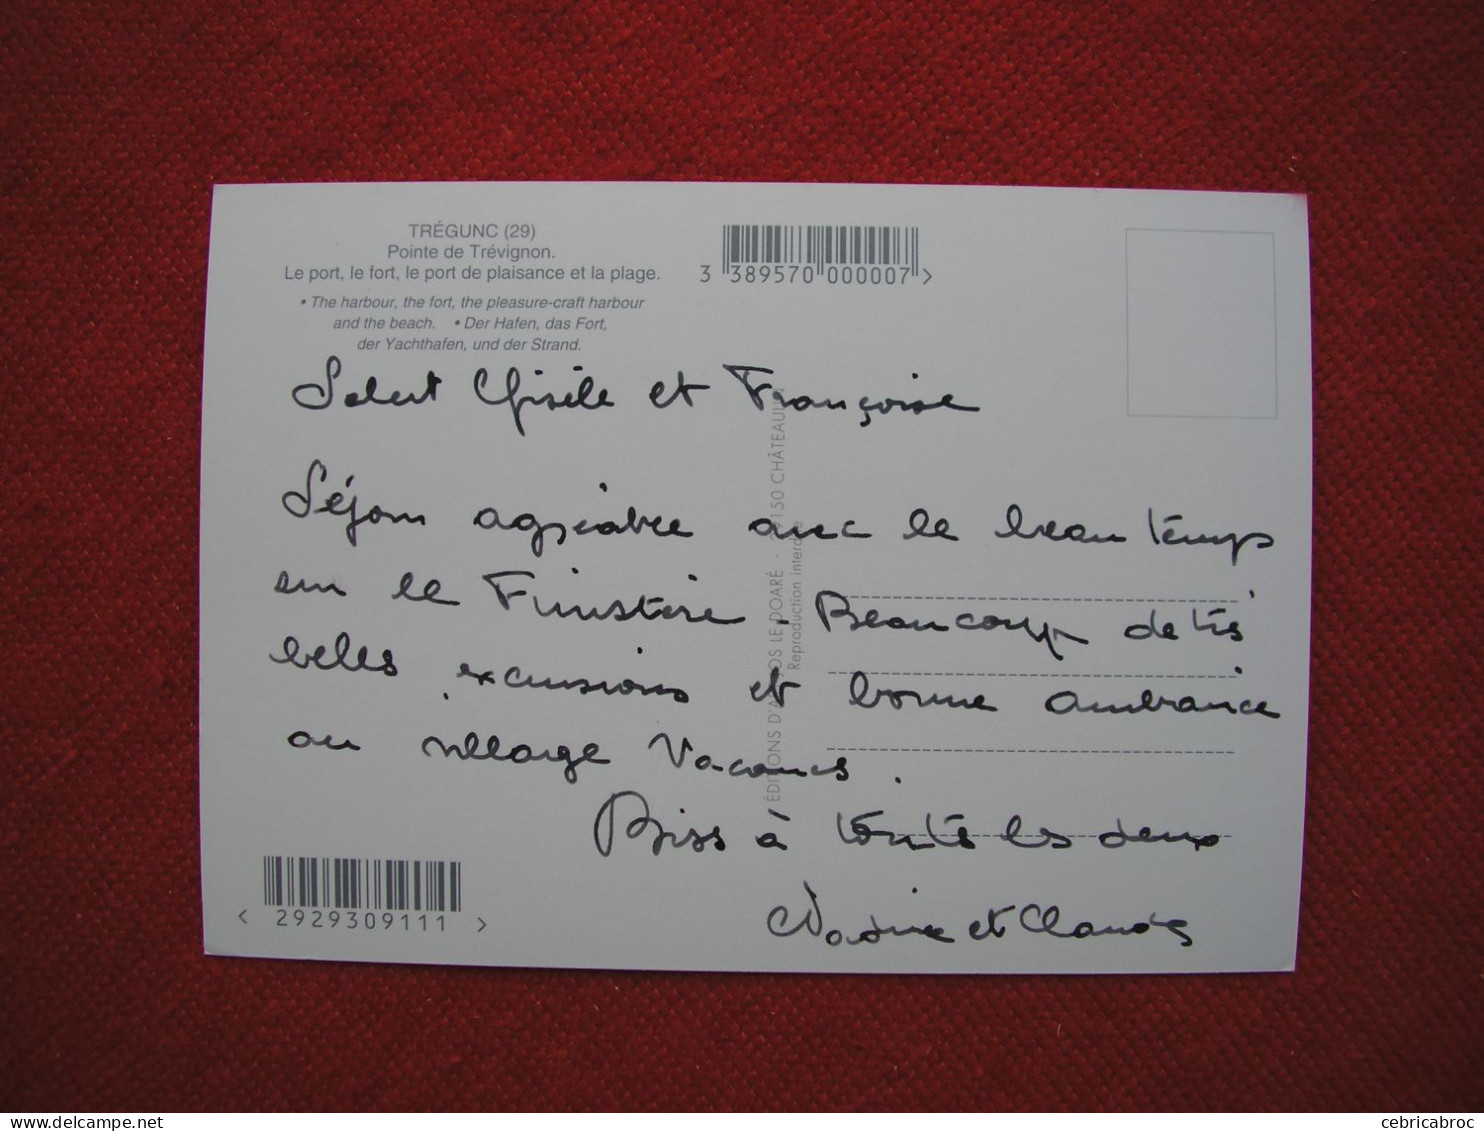 TRÉGUNC (29)
Pointe de Trévignon.
Le port, le fort, le port de plaisance et la plage.
• The harbour, the fort, the pleasure-craft harbour
and the beach. • Der Hafen, das Fort,
der Yachthafen, und der Strand.
3 389570 000007 >
Salut Gisèle et Françoise
Séjour agréable avec le beau temps
sur le Finistère. Beaucoup de très
belles excursions et bonne ambiance
au village Vacances.
Bises à toutes les deux
Nadine et Claude
ÉDITIONS D'ART JOS LE DOARÉ - 29150 CHÂTEAULIN
Reproduction interdite
< 2929309111 >
cebricabroc